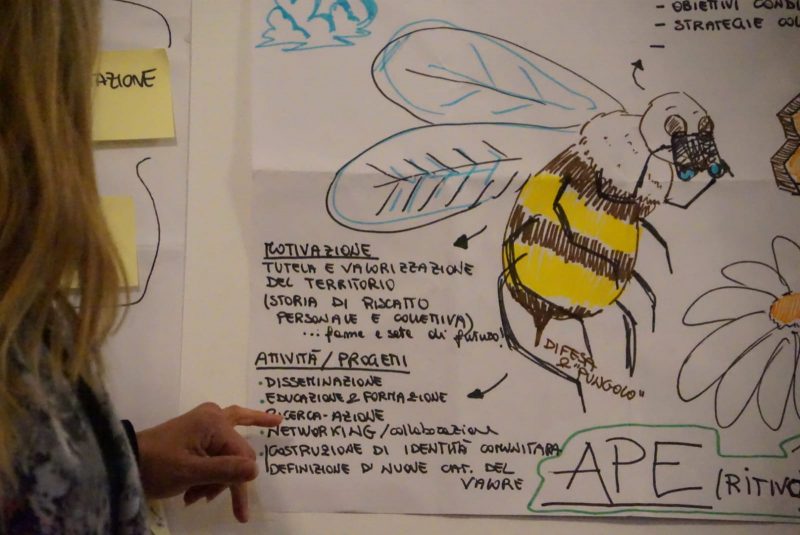 AZIONE
- OBIETTIVI CONDI
- STRATEGIE COL
-
MOTIVAZIONE
TUTELA E VALORIZZAZIONE
DEL TERRITORIO
(STORIA DI RISCATTO
PERSONALE E COLLETTIVA)
... fame e sete di futuro!
ATTIVITÀ/PROGETTI
· DISSEMINAZIONE
· EDUCAZIONE & FORMAZIONE
RICERCA-AZIONE
· NETWORKING/collaborazioni
· COSTRUZIONE DI IDENTITÀ COMUNITARIA
DEFINIZIONE DI NUOVE CAT. DEL
VALORE
DIFESA
& "PUNGOLO"
APE (RITIVO